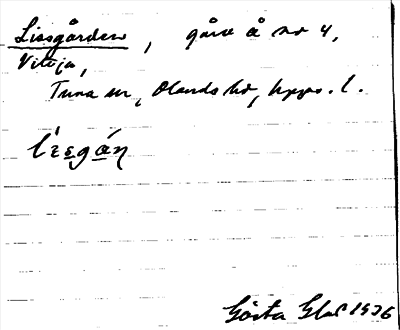 Lissgården, gård å nr 4,
Viteja,
Tuna sn, Olands hd, Upps. l.
l'ɛsgán
Gösta Glas 1936